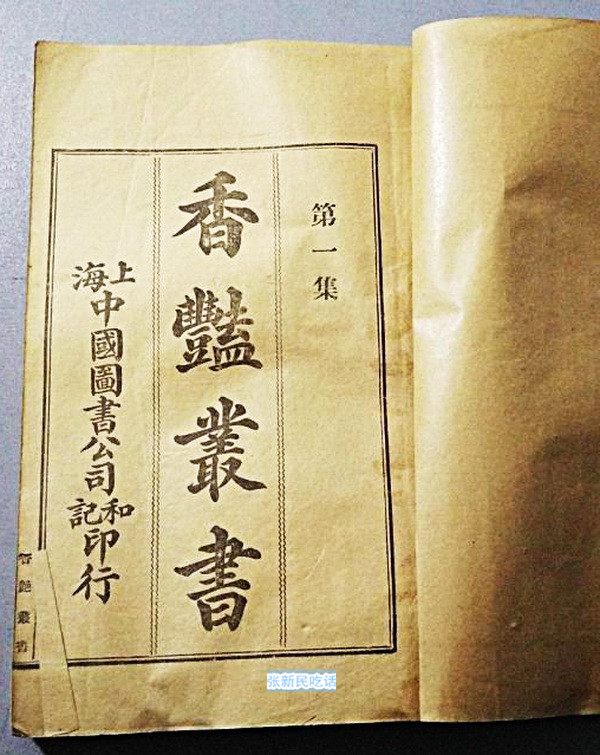 第一集
香豔叢書
上海中國圖書公司和記印行
香艷叢書
张新民吃话